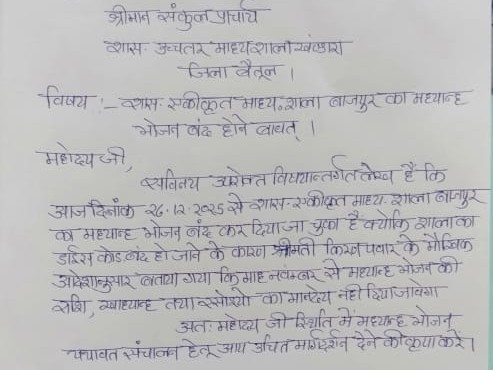 श्रीमान संकुल प्राचार्य
शास. उच्चतर माध्य. शाला खंडारा
जिला बैतूल ।
विषय :- शास. एकीकृत माध्य. शाला बाजपुर का मध्यान्ह
भोजन बंद होने बाबत् ।
महोदय जी,
सविनय उपरोक्त विषयान्तर्गत लेख है कि
आज दिनांक 26.12.2025 से शास. एकीकृत माध्य. शाला बाजपुर
का मध्यान्ह भोजन बंद कर दिया जा चुका है क्योंकि शाला का
डाईस कोड बंद हो जाने के कारण श्रीमती किरन पवार के मौखिक
आदेशानुसार बताया गया कि माह नवंबर से मध्यान्ह भोजन की
राशि, खाद्यान्ह तथा रसोइयो का मानदेय नही दिया जावेगा
अतः महोदय जी स्थिति में मध्यान्ह भोजन
यथावत संचालन हेतु आप उचित मार्गदर्शन देने की कृपा करें ।